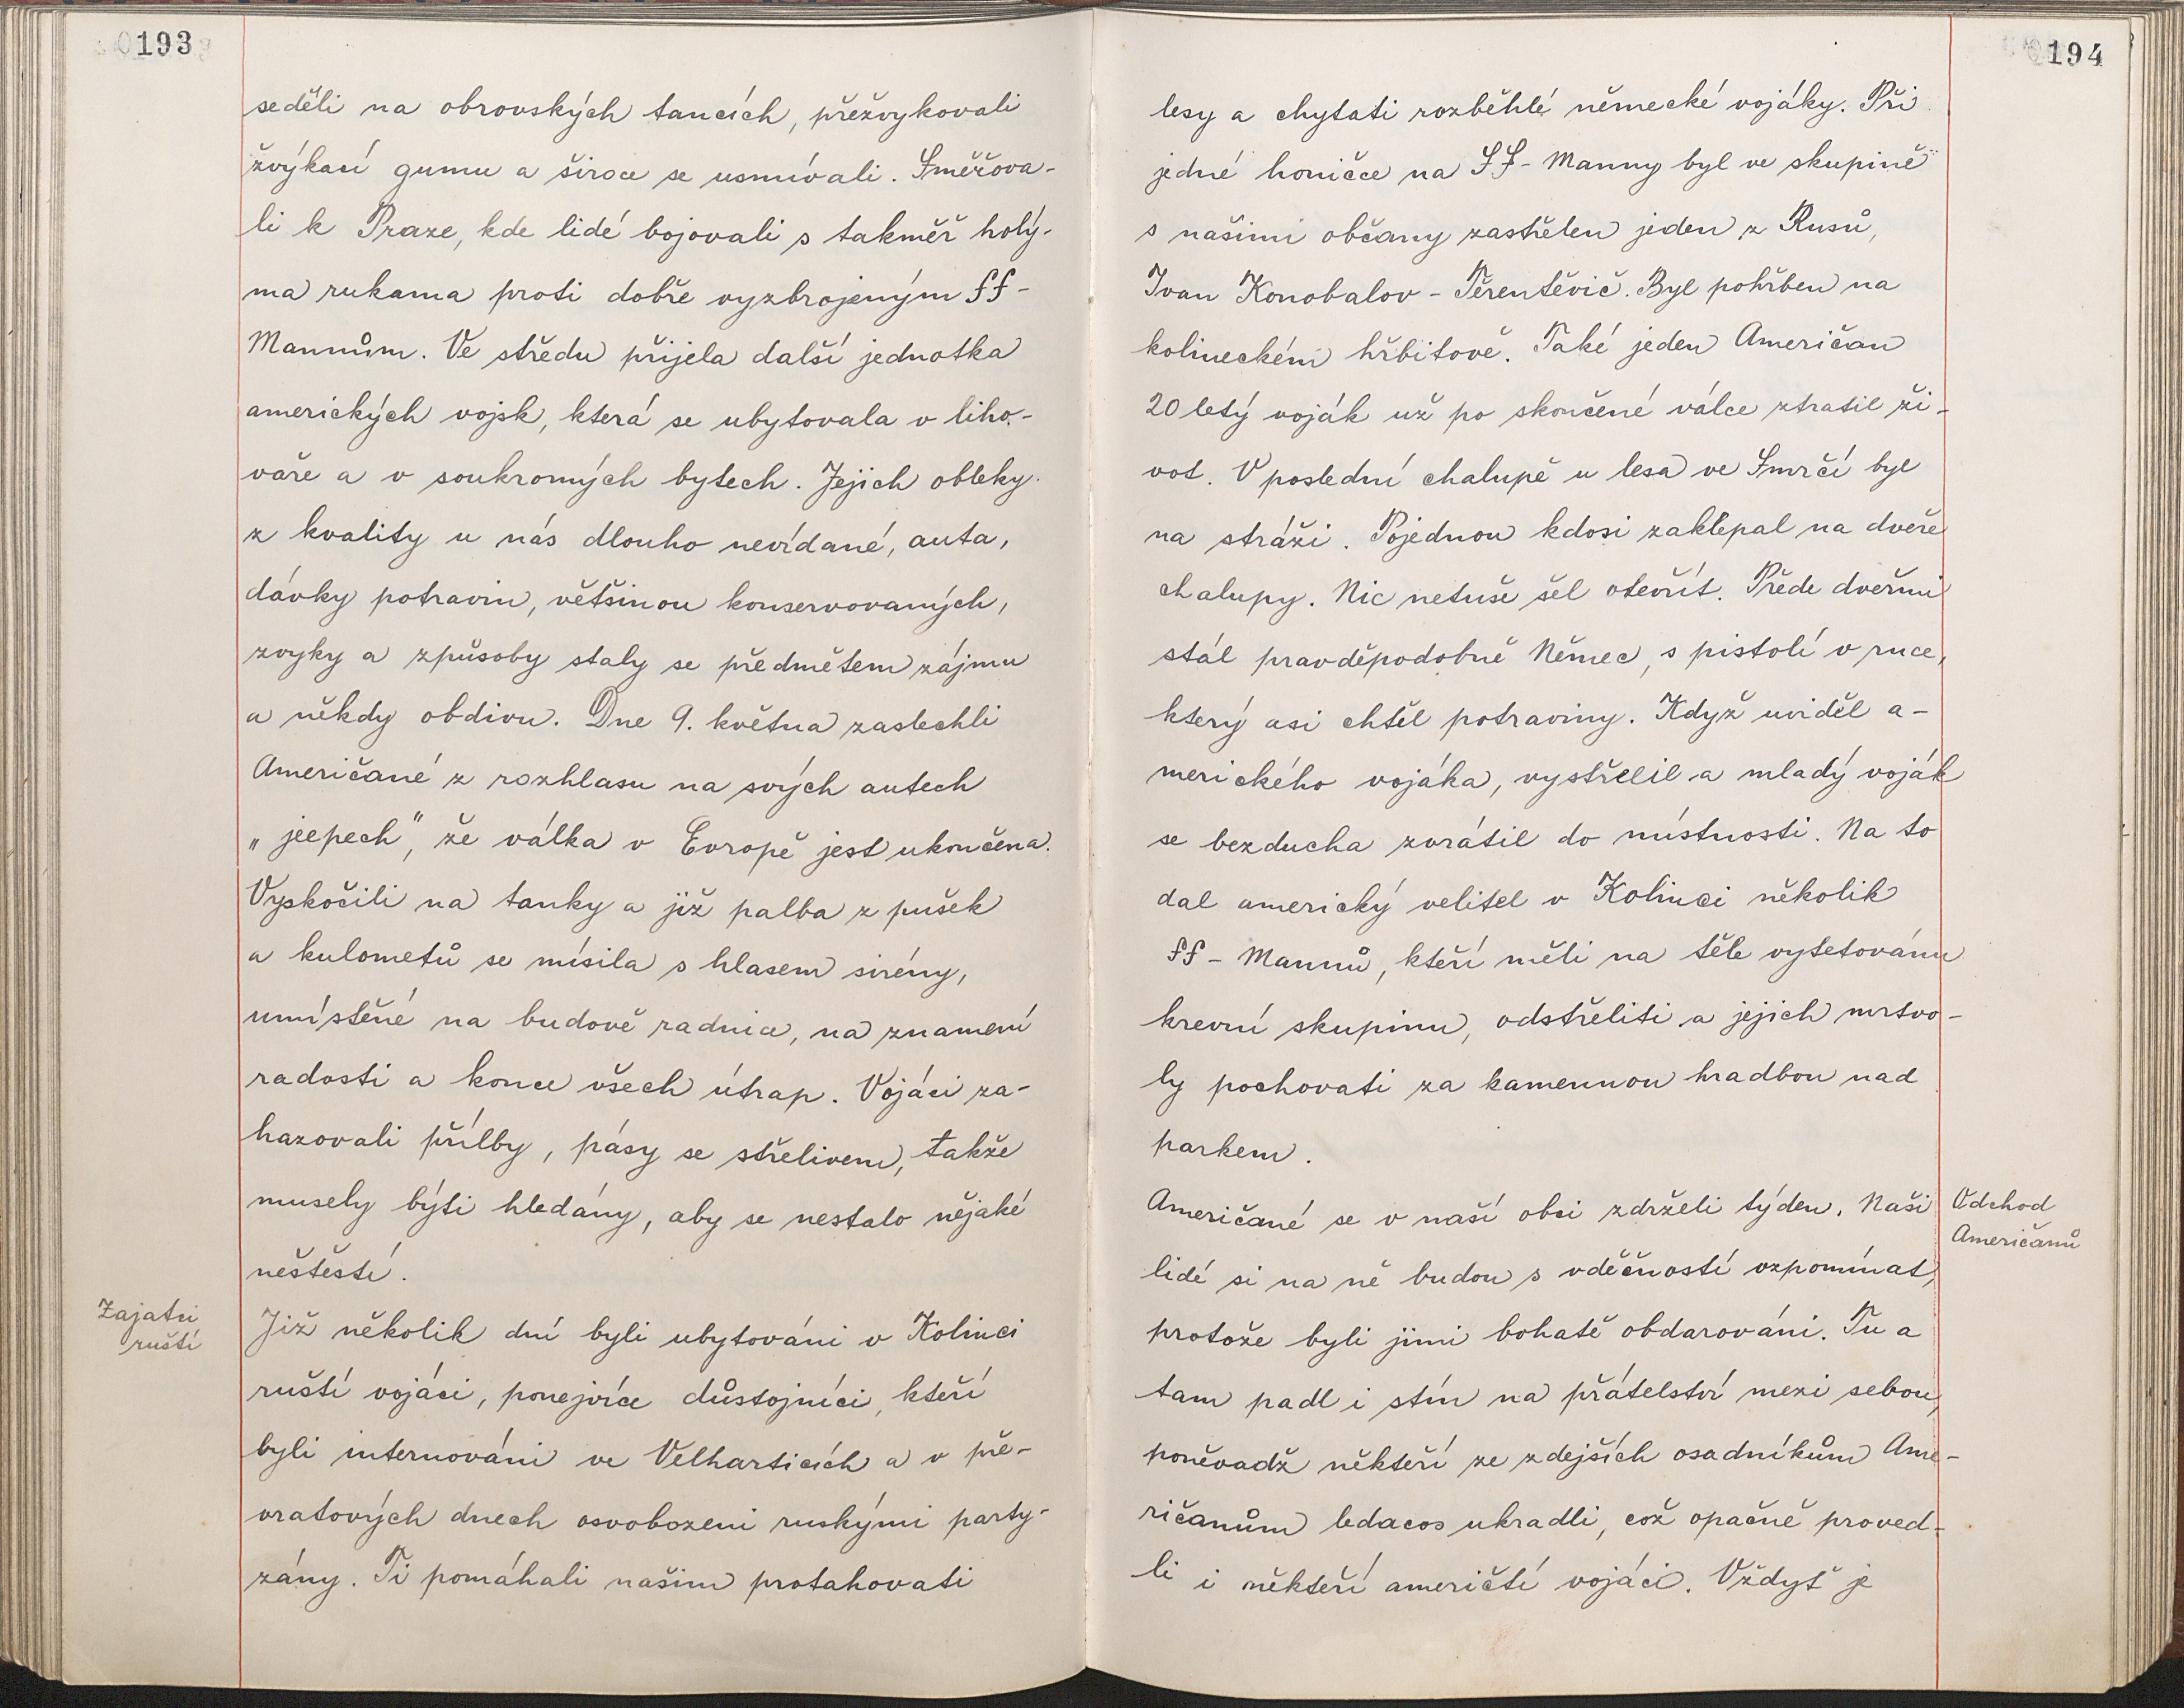 193
seděli na obrovských tancích, přežvykovali
žvýkací gumu a široce se usmívali. Směřova-
li k Praze, kde lidé bojovali s takměř holý-
ma rukama proti dobře vyzbrojeným SS-
Mannům. Ve středu přijela další jednotka
amerických vojsk, která se ubytovala v liho-
vaře a v soukromých bytech. Jejich obleky
z kvality u nás dlouho nevídané, auta,
dávky potravin, většinou konservovaných,
zvyky a způsoby staly se předmětem zájmu
a někdy obdivu. Dne 9. května zaslechli
Američané z rozhlasu na svých autech
„jeepech", že válka v Evropě jest ukončena.
Vyskočili na tanky a již palba z pušek
a kulometů se mísila s hlasem sirény,
umístěné na budově radnice, na znamení
radosti a konce všech útrap. Vojáci za-
hazovali přílby, pásy se střelivem, takže
musely býti hledány, aby se nestalo nějaké
neštěstí.
Zajatci
ruští
Již několik dní byli ubytováni v Kolinci
ruští vojáci, ponejvíce důstojníci, kteří
byli internováni ve Velharticích a v pře-
vratových dnech osvobozeni ruskými party-
zány. Ti pomáhali našim protahovati
194
lesy a chytati rozběhlé německé vojáky. Při
jedné honičce na SS-Manny byl ve skupině
s našimi občany zastřelen jeden z Rusů,
Ivan Konobalov-Těrentěvič. Byl pohřben na
kolineckém hřbitově. Také jeden Američan
20 letý voják už po skončené válce ztratil ži-
vot. V poslední chalupě u lesa ve Smrčí byl
na stráži. Pojednou kdosi zaklepal na dveře
chalupy. Nic netuše šel otevřít. Přede dveřmi
stál pravděpodobně Němec, s pistolí v ruce,
který asi chtěl potraviny. Když uviděl a-
merického vojáka, vystřelil a mladý voják
se bezducha zvrátil do místnosti. Na to
dal americký velitel v Kolinci několik
SS-Mannů, kteří měli na těle vytetovánu
krevní skupinu, odstřeliti a jejich mrtvo-
ly pochovati za kamennou hradbou nad
parkem.
Američané se v naší obci zdrželi týden. Naši
Odchod
Američanů
lidé si na ně budou s vděčností vzpomínat,
protože byli jimi bohatě obdarováni. Tu a
tam padl i stín na přátelství mezi sebou,
poněvadž někteří ze zdejších osadníkům Ame-
ričanům ledacos ukradli, což opačně proved-
li i někteří američtí vojáci. Vždyť je